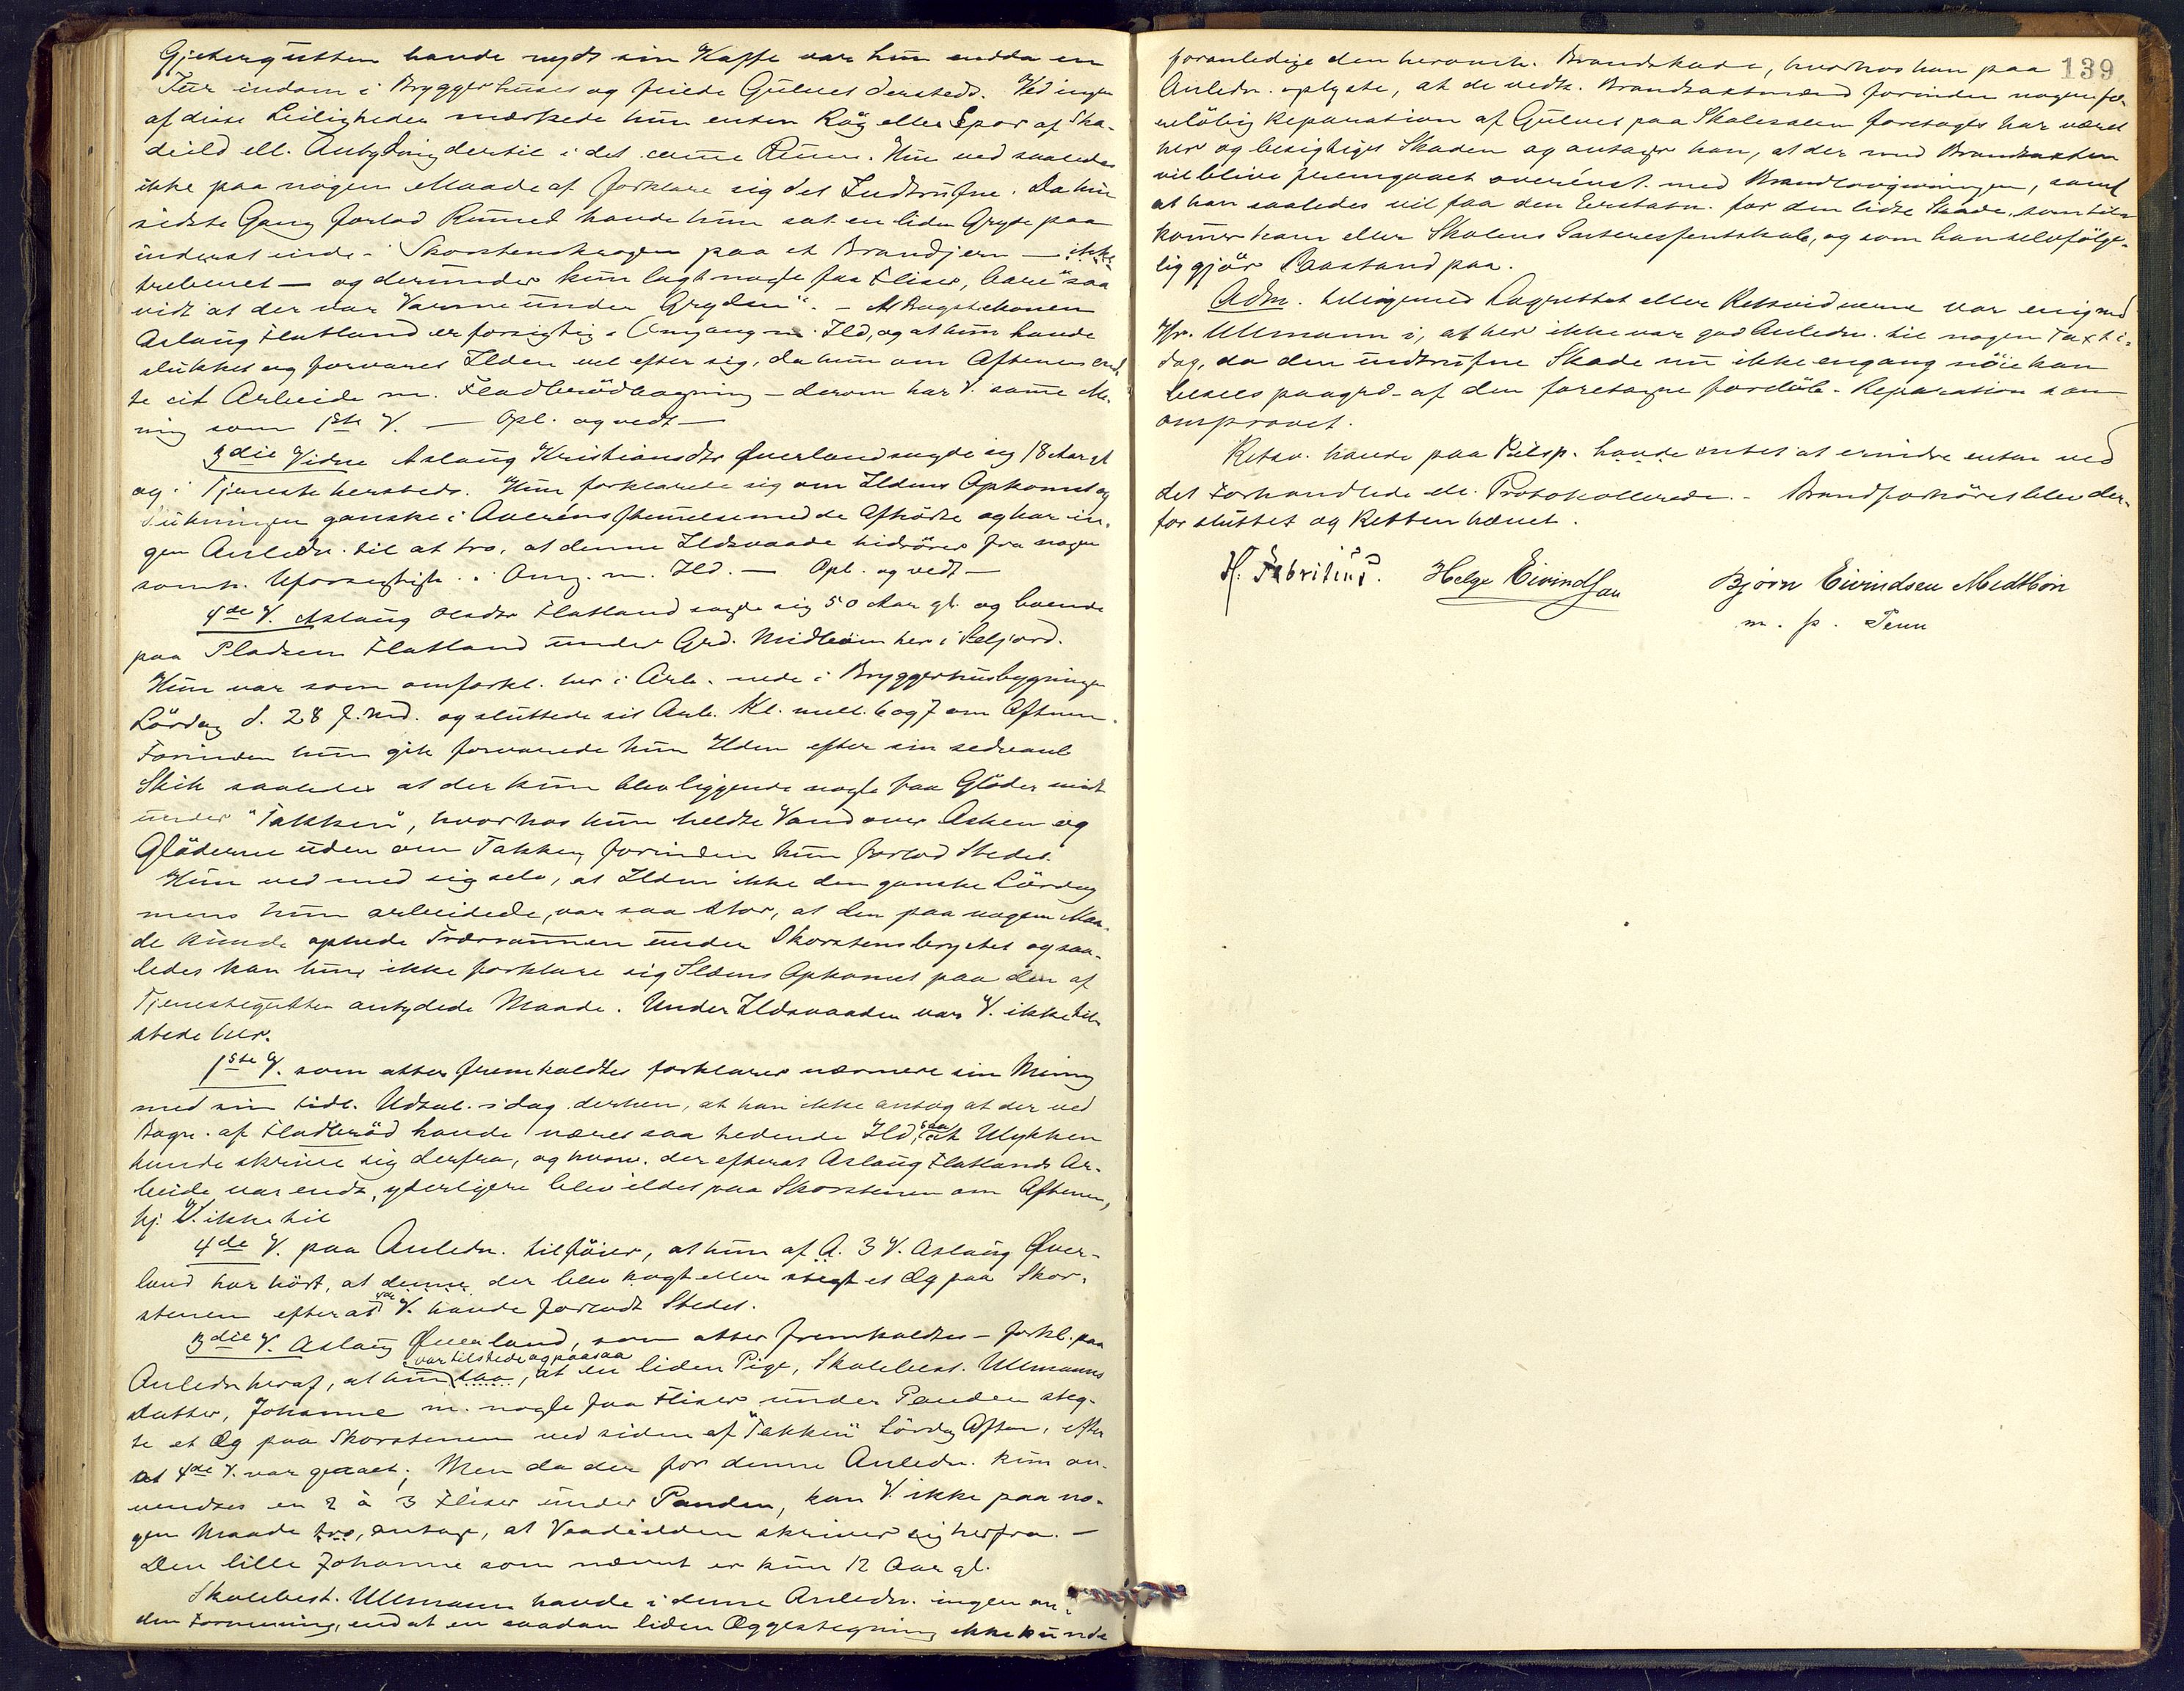 Gjetergutten havde nydt sin Kaffe var hun endda en
Tur indom i Bryggerhuset og feiede Gulvet dersteds. Ved ingen
af disse Leiligheder mærkede hun enten Røg eller Spor af Ska-
deild ell. Antydning dertil i det samme Rum. Hun ved saaledes
ikke paa nogen Maade at forklare sig det Indtrufne. Da hun
sidste Gang forlod Rummet havde hun sat en liden Gryde paa
inderst inde i Skorstenskrogen paa et Brandjern — ikke
trebenet — og derunder kun lagt nogle faa Fliser, bare "saa
vidt at der var Varme under Gryden". — At Bagstekonen
Aslaug Flatland er forsigtig i Omgang m. Ild, og at hun havde
slukket og forvaret Ilden vel efter sig, da hun om Aftenen end-
te sit Arbeide m. Fladbrødbagning — derom har V. samme Me-
ning som 1ste V. — Opl. og vedt —
3die Vidne Aslaug Kristiansdtr Øverland sagde sig 18 Aar gl
og i Tjeneste hersteds. Hun forklarede sig om Ildens Opkomst og
Slukningen ganske i Overensstemmelse med de Afhørte og har in-
gen Anledn. til at tro, at denne Ildsvaade hidrører fra nogen
somh. Uforsigtigh. i Omg. m. Ild. — Opl. og vedt —
4de V. Aslaug Olsdtr Flatland sagde sig 50 Aar gl. og boende
paa Pladsen Flatland under Grd. Midbøen her i Seljord.
Hun var som omforkl. her i Arb. nede i Bryggerhusbygningen
Lørdag d. 28 f. Md. og sluttede sit Arb. Kl. mell. 6 og 7 om Aftenen.
Forinden hun gik forvarede hun Ilden efter sin sedvanl
Skik saaledes at der kun blev liggende nogle faa Gløder midt
under "Takken", hvorhos hun heldte Vand over Asken og
Gløderne uden om Takken, forinden hun forlod Stedet.
Hun ved med sig selv, at Ilden ikke den ganske Lørdag
mens hun arbeidede, var saa stor, at den paa nogen Maa-
de kunde ophede Trærammen under Skorstensbrystet og saa-
ledes kan hun ikke forklare sig Ildens Opkomst paa den af
Tjenestegutten antydede Maade. Under Ildsvaaden var V. ikke til-
stede her.
1ste V. som atter fremkaldtes forklarer nærmere sin Mening
med sin tidl. Udtal. idag derhen, at han ikke antog at der ved
Bagn. af Fladbrød havde været saa hedende Ild, saa at Ulykken
kunde skrive sig derfra, og hvorv. der efterat Aslaug Flatlands Ar-
beide var endt, yderligere blev ildet paa Skorstenen om Aftenen,
kj. V. ikke til
4de V. paa Anledn. tilføier, at hun af A. 3 V. Aslaug Øver-
land har hørt, at denne der blev kogt eller stegt et Æg paa Skor-
stenen efterat 4de V. havde forladt Stedet.
3die V. Aslaug Øverland, som atter fremkaldtes — forkl. paa
Anledn heraf, at hun saa, var tilstede og paasaa at en liden Pige, Skolebest. Ullmanns
Datter, Johanne m. nogle faa Fliser under Panden steg-
te et Æg paa Skorstenen ved siden af "Takken" Lørdag Aften, efter
at 4de V. var gaaet; Men da der for denne Anledn. kun an-
vendtes en 2 à 3 Fliser under Panden, kan V. ikke paa no-
gen Maade tro, antage, at Vaadeilden skriver sig herfra. —
Den lille Johanne som nævnt er kun 12 Aar gl.
Skolebest. Ullmann havde i denne Anledn. ingen an-
den Formening, end at en saadan liden Æggestegning ikke kunde
139
foranledige den heromh. Brandskade, hvorhos han paa
Anledn. oplyste, at de vedk. Brandtaxtmænd forinden nogen for-
eløbig Reparation af Gulvet paa Skolesalen foretoges har været
her og besigtiget Skaden og antager han, at der med Brandtaxten
vil blive fremgaaet overenst. med Brandlovgivningen, samt
at han saaledes vil faa den Erstatn. for den lidte Skade, som til-
kommer ham eller Skolens Interessentskab, og som han selvfølge-
lig gjør Paastand paa.
Adm. ligemed Lagrettet eller Retsvidnerne var enig med
Hr. Ullmann i, at her ikke var god Anledn. til nogen Taxt i-
dag, da den indtrufne Skade nu ikke engang nøie kan
besees paagrd. af den foretagne foreløb. Reparation som
omprovet.
Retsv. havde paa Tilsp. havde intet at erindre enten ved
det Forhandlede ell. Protokollerede. — Brandforhøret blev der-
for sluttet og Retten hævet.
H. Fabritius. Helge Eivindsen Bjørn Eivindsen Midtbøn
m. p. Penn